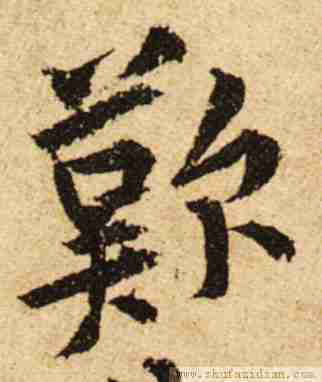 歎
www.shufazidian.com